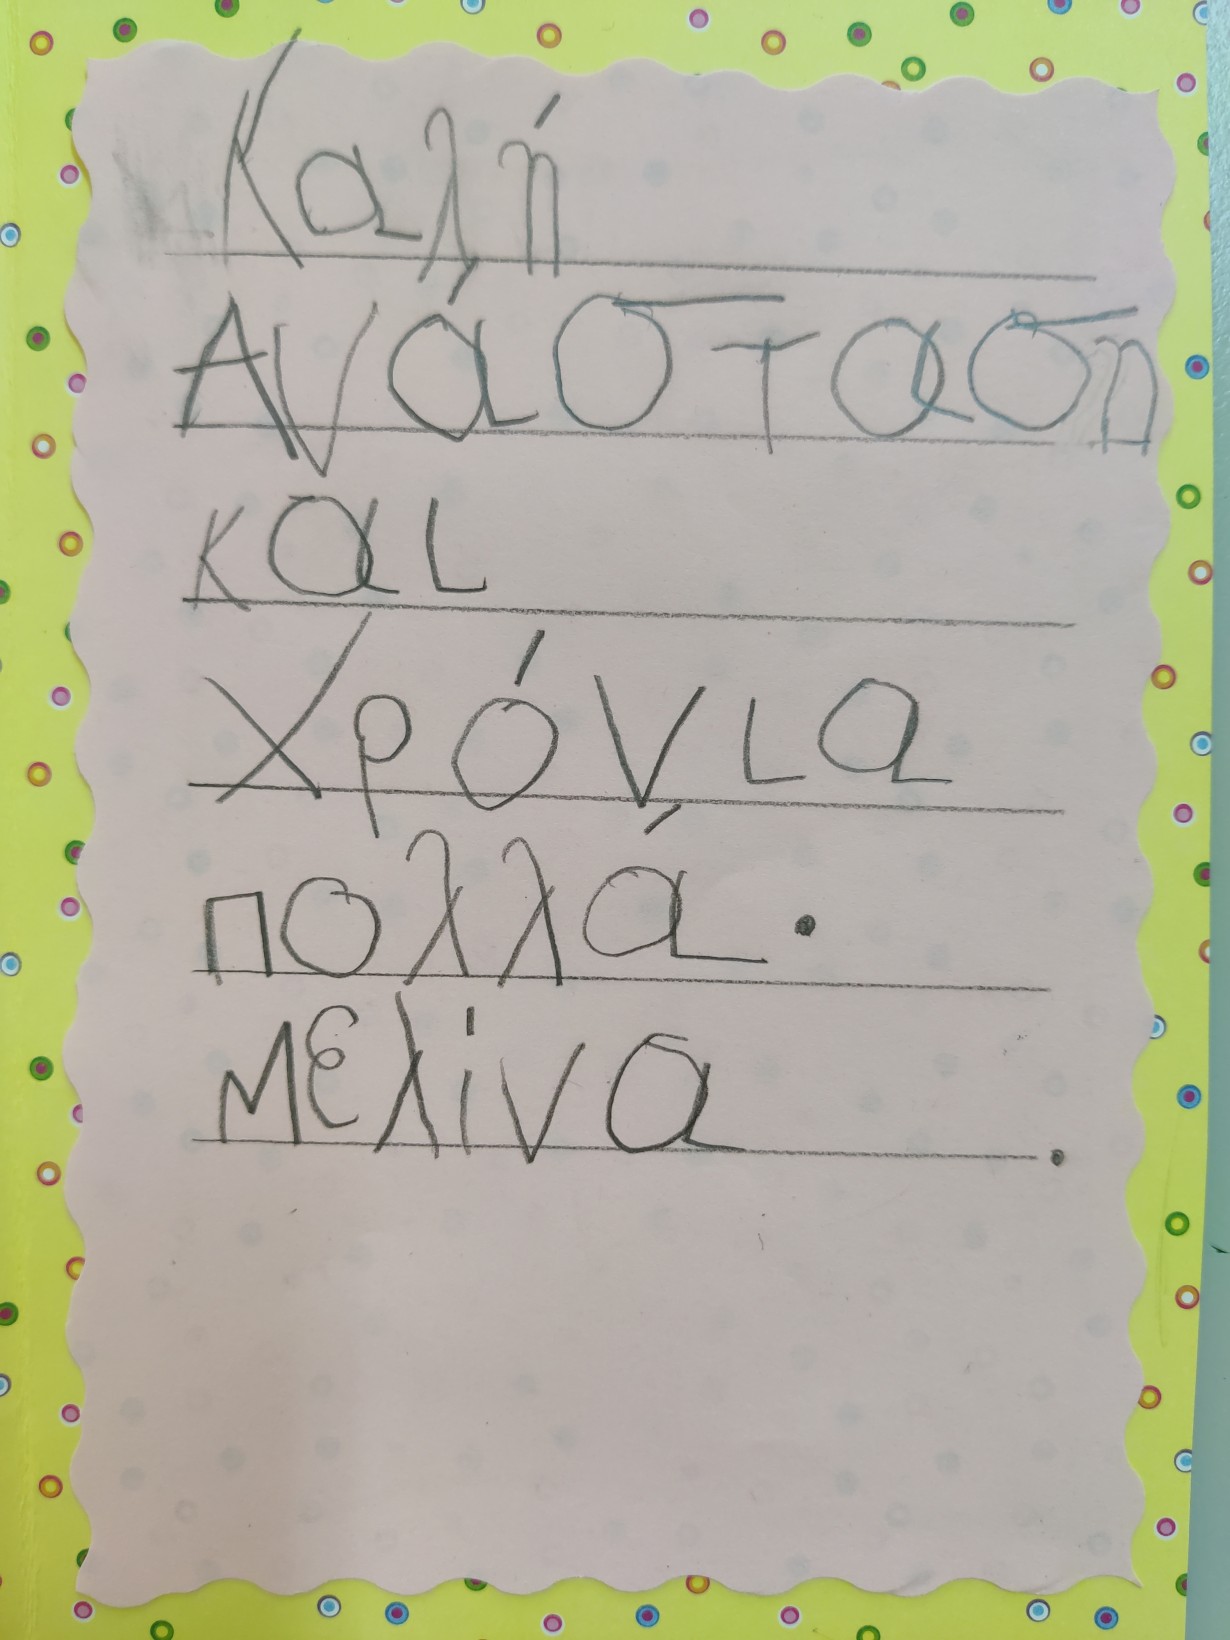 Καλή
Ανάσταση
και
Χρόνια
πολλά.
Μελίνα.